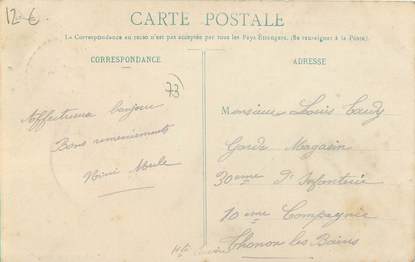 12 €
CARTE POSTALE
La Correspondance au recto n'est pas acceptée par tous les Pays Étrangers. (Se renseigner à la Poste).
CORRESPONDANCE
ADRESSE
73
Affectueux bonjour
Bons remerciements
Nini
Monsieur Louis
Garde Magasin
30eme d'Infanterie
10 eme Compagnie
Thonon les Bains
Hte Savoie